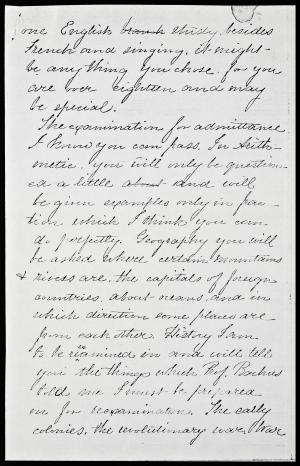 one English branch study, besides
French and singing, it might
be anything you chose, for you
are over eighteen and may
be special.
The examination for admittance
I know you can pass. In Arith-
metic, you will only be question-
ed a little about and will
be given examples only in frac-
tion which I think you can
do perfectly. Geography you will
be asked where certain mountains
& rivers are, the capitals of foreign
countries, about oceans, and in
which direction some places are
from each other. History I am
to be examined in and will tell
you the things which Prof.
told me I must be prepared
on for reexamination. The early
colonies, the revolutionary war, War